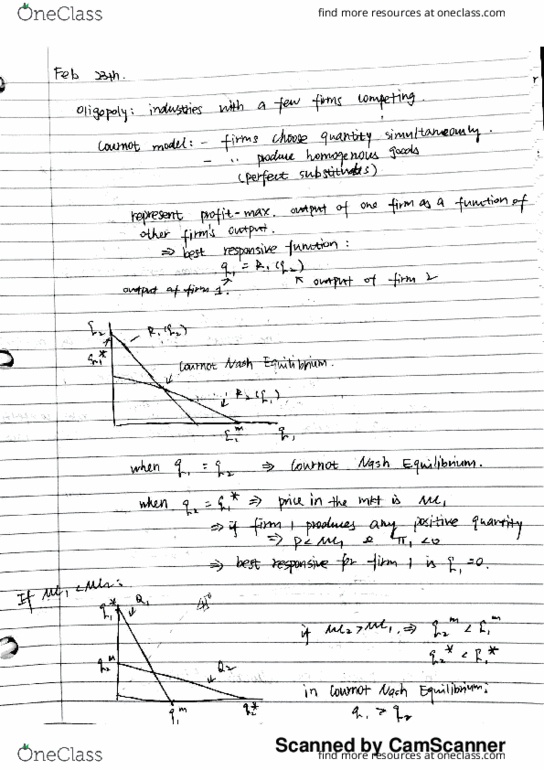 OneClass
find more resources at oneclass.com
Feb 23th.
oligopoly: industries with a few firms competing.
Cournot model: - firms choose quantity simultaneously.
- " produce homogenous goods
(perfect substitutes)
represent profit-max. output of one firm as a function of
other firm's output.
⇒ best responsive function:
q₁ = R₁(q₂)
output of firm 1. output of firm 2
q₂ R₁(q₂)
q₁*
Cournot Nash Equilibrium.
R₂(q₁)
q₁ᵐ q₁
when q₁ = q₂ ⇒ Cournot Nash Equilibrium.
when q₂ = q₁* ⇒ price in the mkt is MC₁
⇒ if firm 1 produces any positive quantity
⇒ P<MC₁ & π₁ <0
⇒ best responsive for firm 1 is q₁=0.
If MC₁ < MC₂:
q₁* R₁ 45°
if MC₂>MC₁ ⇒ q₂ᵐ < q₁ᵐ
q₂ᵐ R₂
q₂* < q₁*
q₁ᵐ q₂*
in Cournot Nash Equilibrium:
q₁ > q₂
Scanned by CamScanner
OneClass
find more resources at oneclass.com